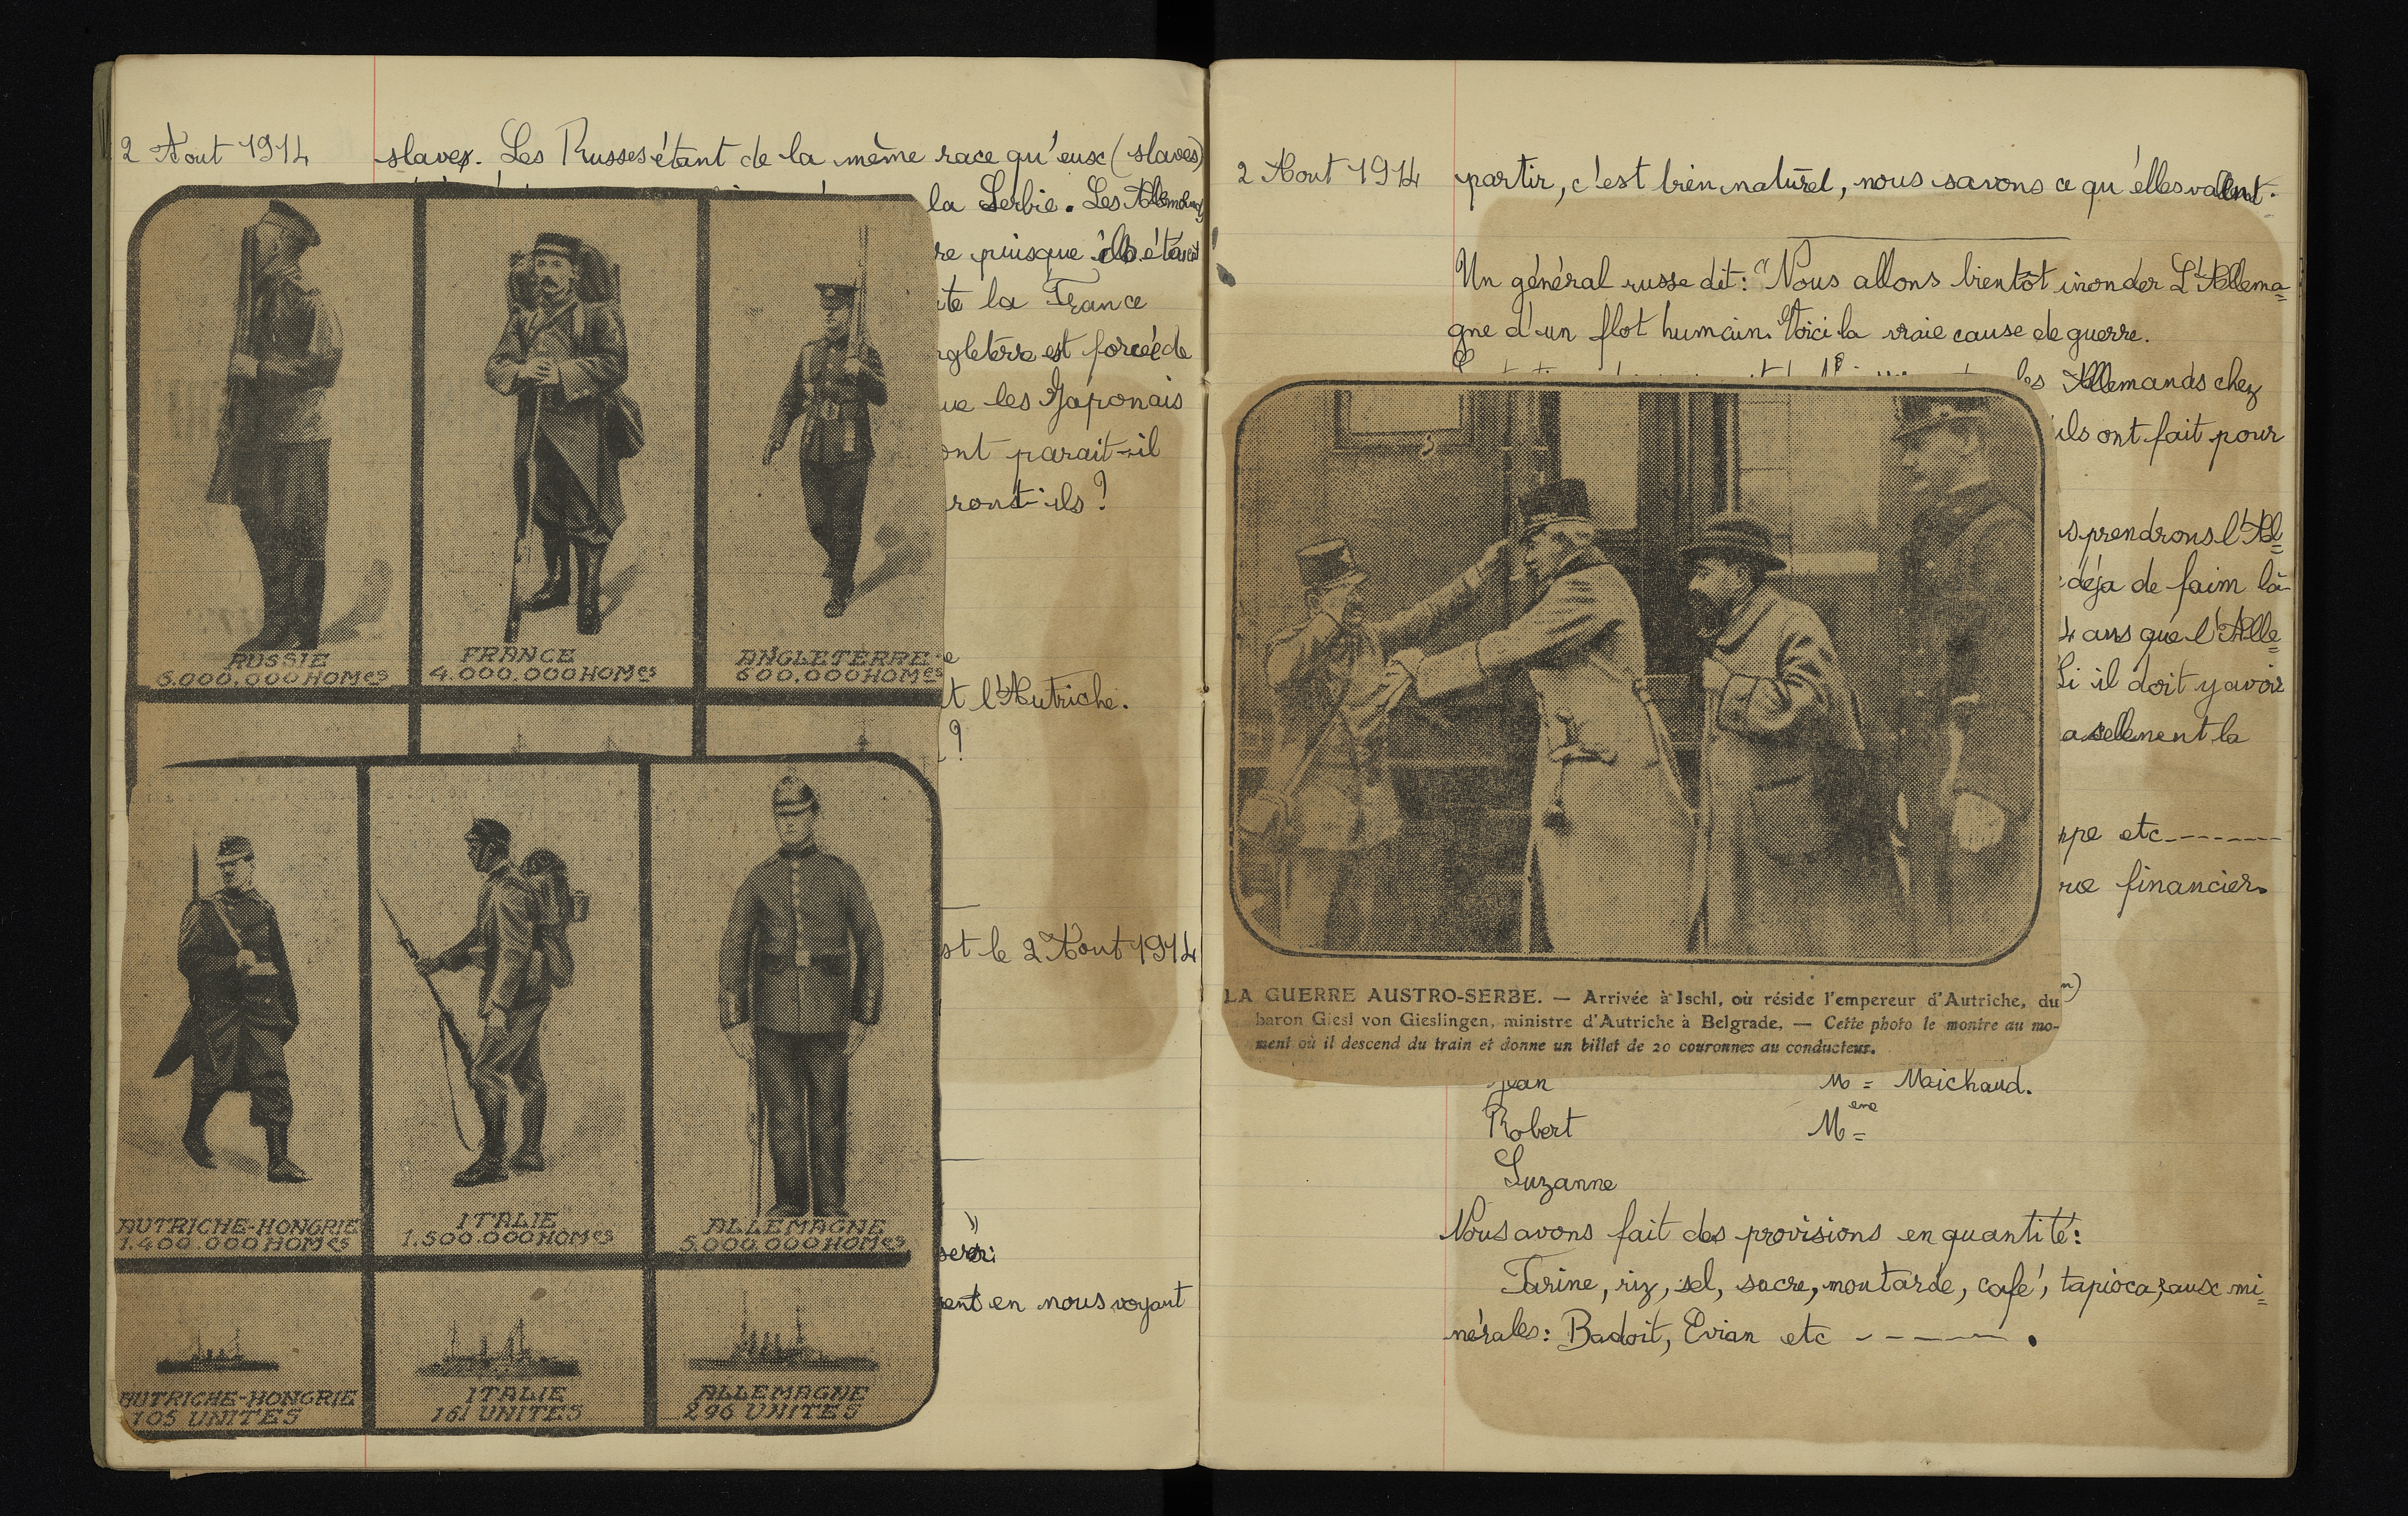 2 Aout 1914
slaves. Les Russes étant de la même race qu'eux (slaves)
la Serbie. Les Allemands
re puisque ils étaient
ite la France
ngleterre est forcée de
ue les Japonais
ont parait-il
ront-ils ?
RUSSIE
FRANCE
ANGLETERRE
6.000.000 HOMes
4.000.000 HOMes
600.000 HOMes
e
t l'Autriche.
?
st le 2 Aout 1914
AUTRICHE-HONGRIE
1.400.000 HOMes
ITALIE
1.500.000 HOMes
ALLEMAGNE
5.000.000 HOMes
"
ent en nous voyant
AUTRICHE-HONGRIE
105 UNITES
ITALIE
161 UNITES
ALLEMAGNE
296 UNITES
2 Aout 1914
partir, c'est bien naturel, nous savons ce qu'elles valent.
Un général russe dit: "Nous allons bientôt inonder L'Allema=
gne d'un flot humain." Voici la vraie cause de guerre.
les Allemands chez
ils ont fait pour
s prendrons l'Al=
déja de faim là-
4 ans que l'Alle=
Si il doit y avoir
la
ppe etc-------
re financier.
n)
LA GUERRE AUSTRO-SERBE. — Arrivée à Ischl, où réside l'empereur d'Autriche, du
baron Giesl von Gieslingen, ministre d'Autriche à Belgrade. — Cette photo le montre au mo-
ment où il descend du train et donne un billet de 20 couronnes au conducteur.
Jean
M = Maichaud.
Robert
Mème =
Suzanne
Nous avons fait des provisions en quantité:
Farine, riz, sel, sucre, moutarde, café, tapioca, eaux mi=
nérales: Badoit, Evian etc ------ .